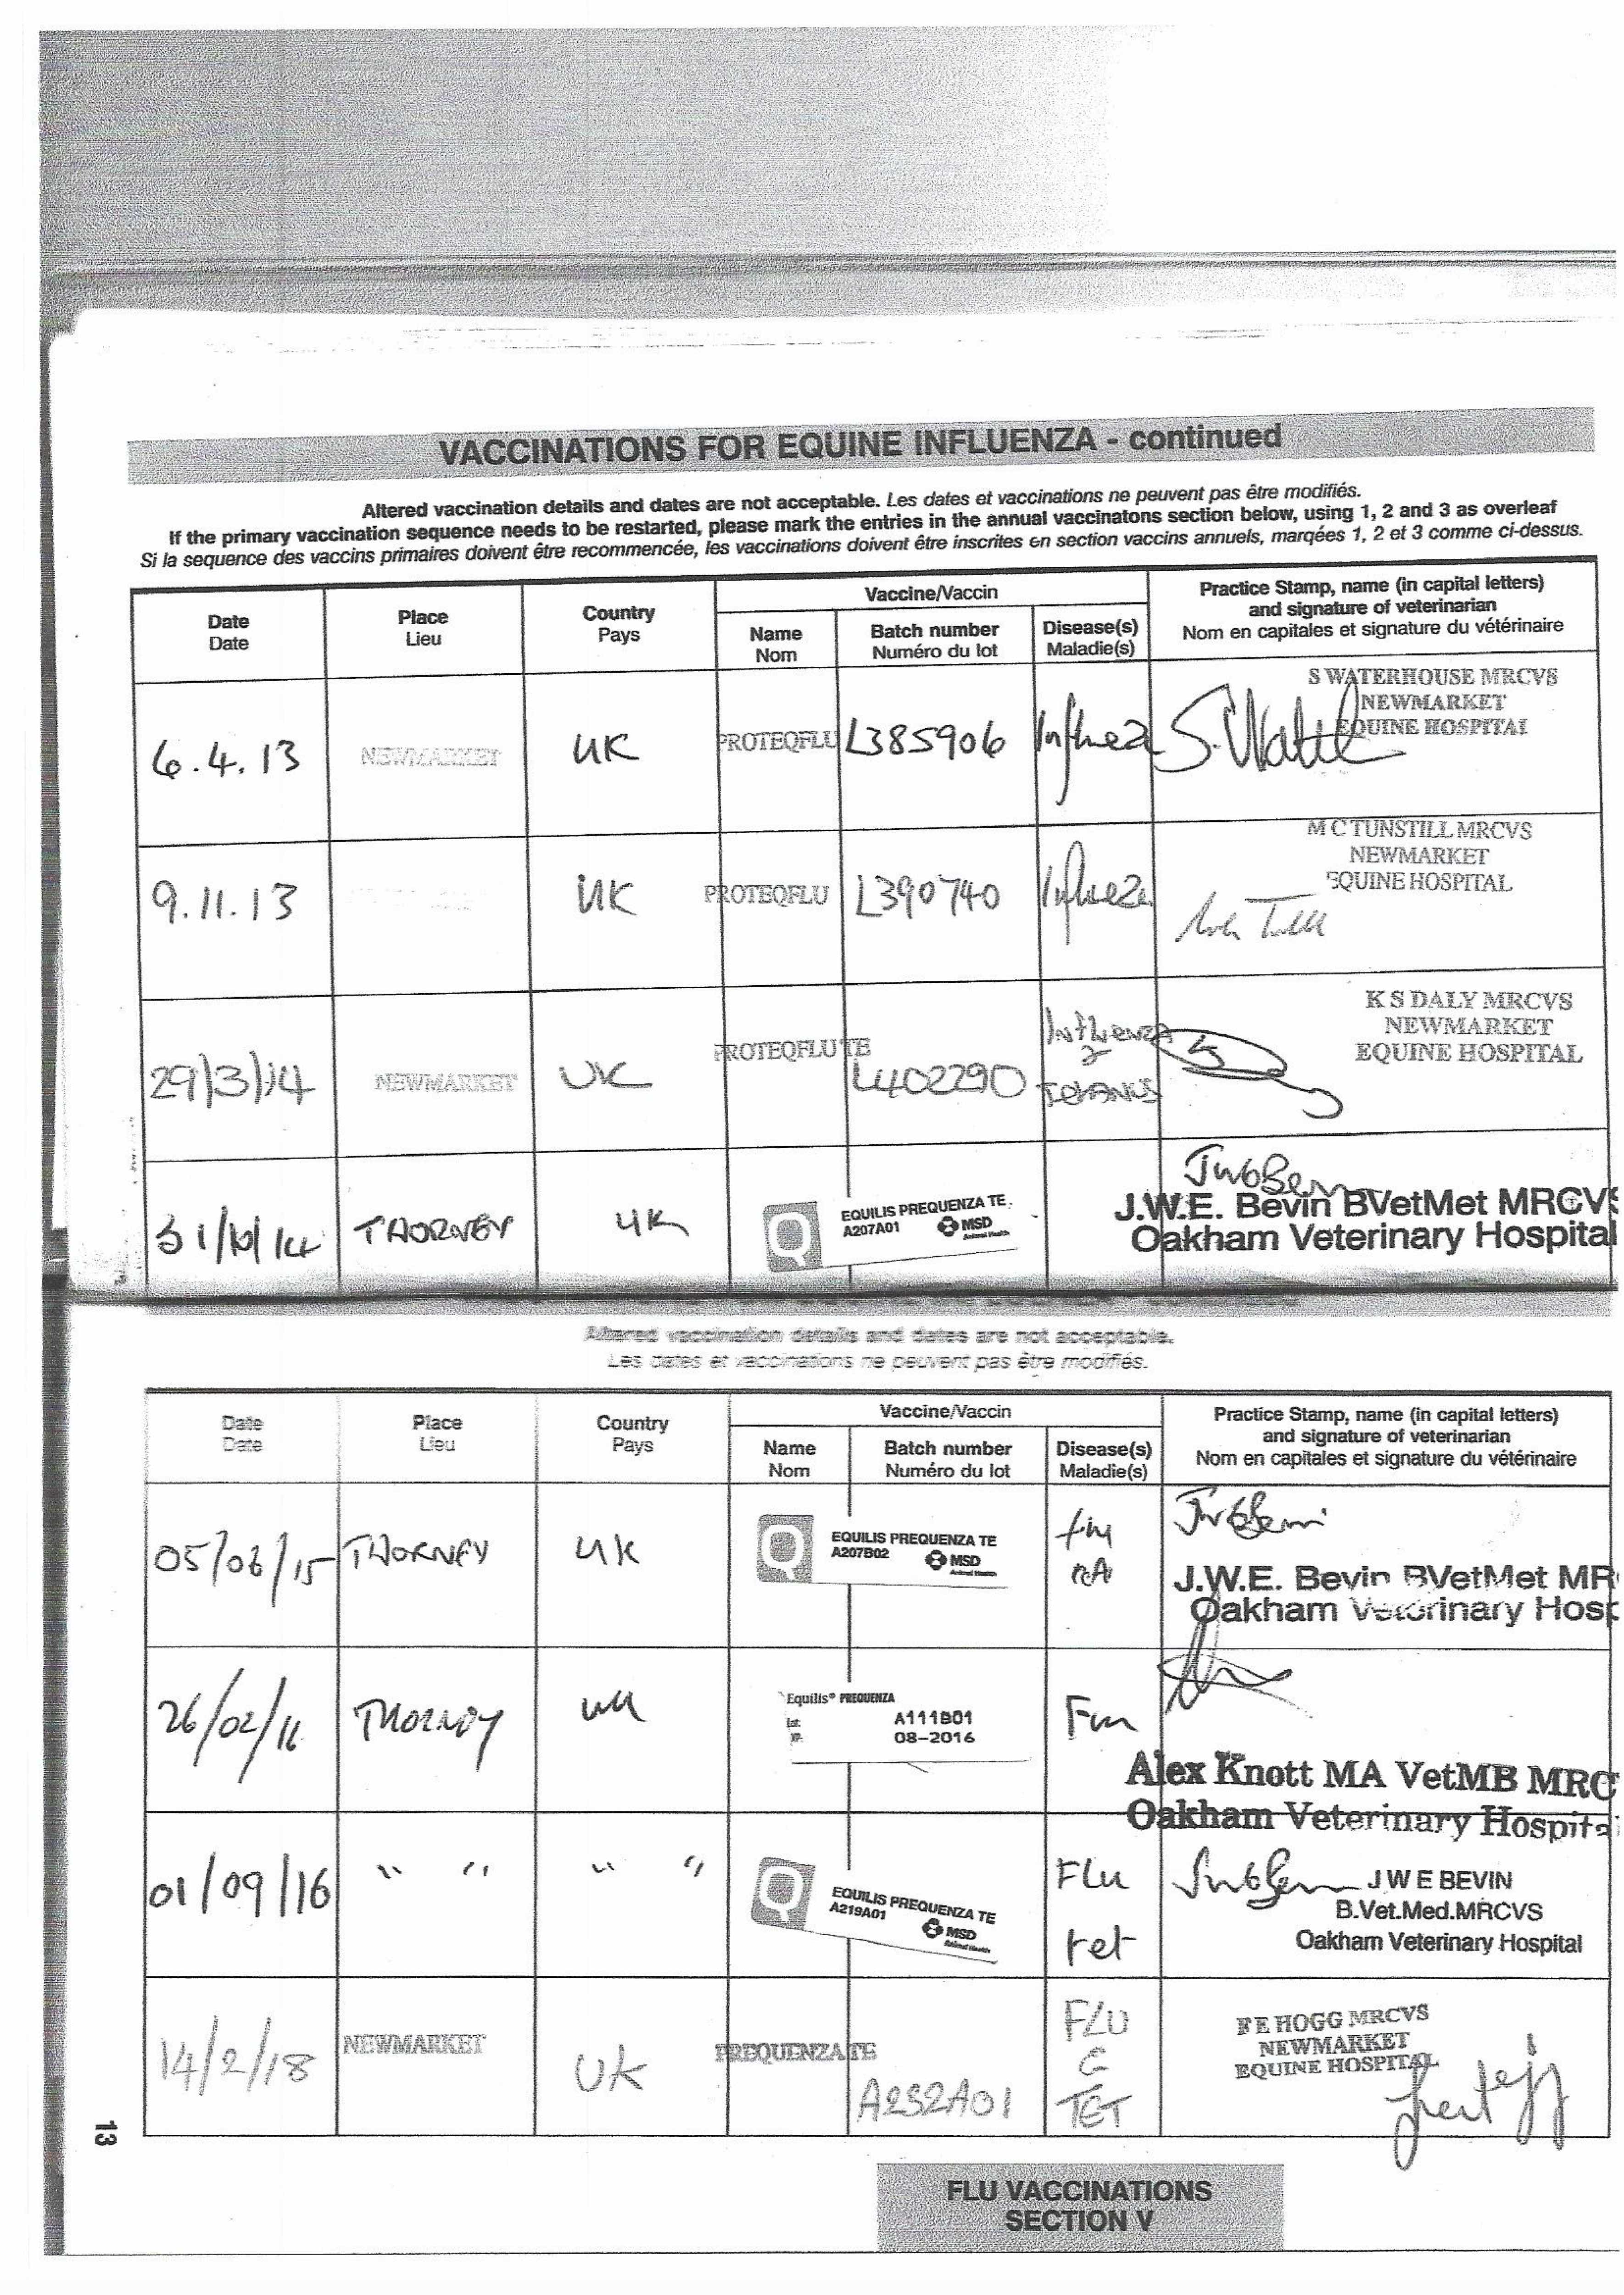 VACCINATIONS FOR EQUINE INFLUENZA - continued
Altered vaccination details and dates are not acceptable. Les dates et vaccinations ne peuvent pas être modifiés.
If the primary vaccination sequence needs to be restarted, please mark the entries in the annual vaccinatons section below, using 1, 2 and 3 as overleaf
Si la sequence des vaccins primaires doivent être recommencée, les vaccinations doivent être inscrites en section vaccins annuels, marqées 1, 2 et 3 comme ci-dessus.
Date
Date
Place
Lieu
Country
Pays
Vaccine/Vaccin
Name
Nom
Batch number
Numéro du lot
Disease(s)
Maladie(s)
Practice Stamp, name (in capital letters)
and signature of veterinarian
Nom en capitales et signature du vétérinaire
6.4.13
NEWMARKET
UK
PROTEQFLU
L385906
S WATERHOUSE MRCVS
NEWMARKET
EQUINE HOSPITAL
9.11.13
UK
PROTEQFLU
L390740
M C TUNSTILL MRCVS
NEWMARKET
EQUINE HOSPITAL
29/3/14
NEWMARKET
UK
PROTEQFLU TE
L402290
Influenza
&
Tetanus
K S DALY MRCVS
NEWMARKET
EQUINE HOSPITAL
31/10/14
THORNEY
UK
EQUILIS PREQUENZA TE
A207A01
MSD
Animal Health
J.W.E. Bevin BVetMet MRCVS
Oakham Veterinary Hospital
Altered vaccination details and dates are not acceptable.
Les dates et vaccinations ne peuvent pas être modifiés.
Date
Date
Place
Lieu
Country
Pays
Vaccine/Vaccin
Name
Nom
Batch number
Numéro du lot
Disease(s)
Maladie(s)
Practice Stamp, name (in capital letters)
and signature of veterinarian
Nom en capitales et signature du vétérinaire
05/06/15
THORNEY
UK
EQUILIS PREQUENZA TE
A207B02
MSD
Animal Health
J.W.E. Bevin BVetMet MR
Oakham Veterinary Hosp
26/02/16
THORNEY
UK
Equilis® PREQUENZA
A111B01
08-2016
Alex Knott MA VetMB MRC
Oakham Veterinary Hospital
01/09/16
" "
" "
EQUILIS PREQUENZA TE
A219A01
MSD
Animal Health
Flu
tet
J W E BEVIN
B.Vet.Med.MRCVS
Oakham Veterinary Hospital
14/2/18
NEWMARKET
UK
PREQUENZA TE
A252A01
FLU
&
TET
F E HOGG MRCVS
NEWMARKET
EQUINE HOSPITAL
13
FLU VACCINATIONS
SECTION V